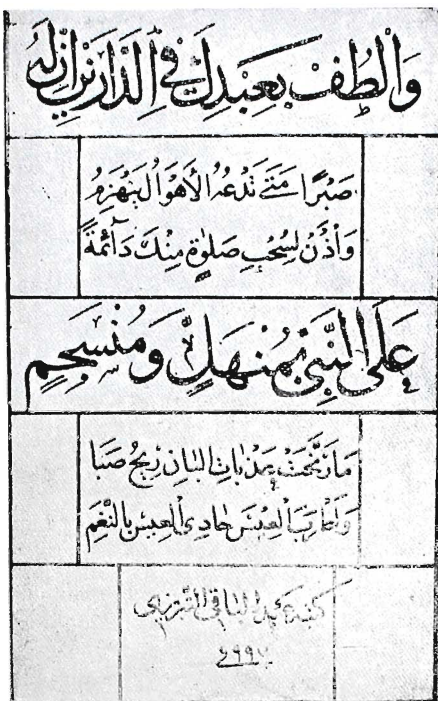 وَالْطُفْ بِعَبْدِكَ فِي الدَّارَيْنِ إِنَّ لَهُ
صَبْرًا مَتَى تَدْعُهُ الأَهْوَالُ يَنْهَزِمُ
وَأْذَنْ لِسُحْبِ صَلٰوةٍ مِنْكَ دَآئِمَةً
عَلَى النَّبِيِّ بِمُنْهَلٍّ وَمُنْسَجِمٍ
مَارَنَّحَتْ عَذَبَاتِ الْبَانِ رِيحُ صَبَا
وَأَطْرَبَ الْعِيسَ حَادِي الْعِيسِ بِالنَّغَمِ
كتبه عبد الباقي التبريزي